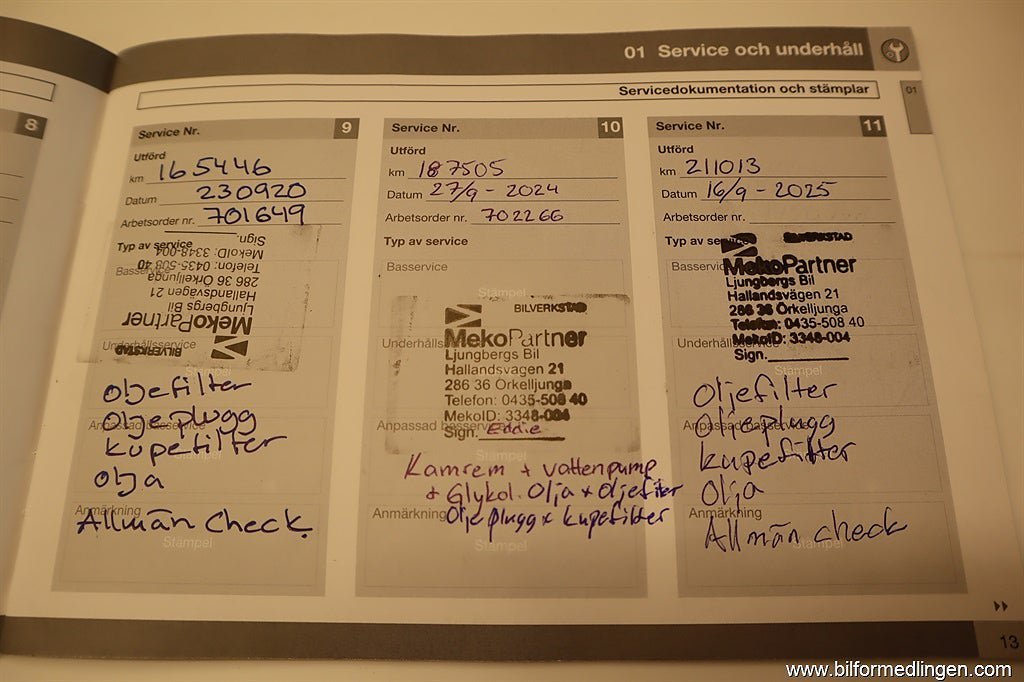 01 Service och underhåll
Servicedokumentation och stämplar
01
8
Service Nr. 9
Utförd
km 165446
Datum 230920
Arbetsorder nr. 701649
Typ av service
Basservice
BILVERKSTAD
MekoPartner
Ljungbergs Bil
Hallandsvägen 21
286 36 Örkelljunga
Telefon: 0435-508 40
MekoID: 3348-004
Sign.
Underhållsservice
Stämpel
oljefilter
Anpassad basservice
oljeplugg
kupefilter
Stämpel
olja
Anmärkning
Allmän check
Stämpel
Service Nr. 10
Utförd
km 187505
Datum 27/9 - 2024
Arbetsorder nr. 702266
Typ av service
Basservice
Stämpel
BILVERKSTAD
MekoPartner
Underhålls
Ljungbergs Bil
Hallandsvägen 21
286 36 Örkelljunga
Telefon: 0435-508 40
MekoID: 3348-004
Anpassad basservice
Sign. Eddie
Kamrem + vattenpump
+ Glykol. Olja + oljefilter
Anmärkning
Oljeplugg + kupefilter
Stämpel
Service Nr. 11
Utförd
km 211013
Datum 16/9 - 2025
Arbetsorder nr.
Typ av service
Basservice
BILVERKSTAD
MekoPartner
Ljungbergs Bil
Hallandsvägen 21
286 36 Örkelljunga
Telefon: 0435-508 40
MekoID: 3348-004
Underhålls
Sign.
Stämpel
Oljefilter
Anpassad basservice
oljeplugg
kupefilter
Olja
Anmärkning
Allmän check
Stämpel
13
www.bilformedlingen.com